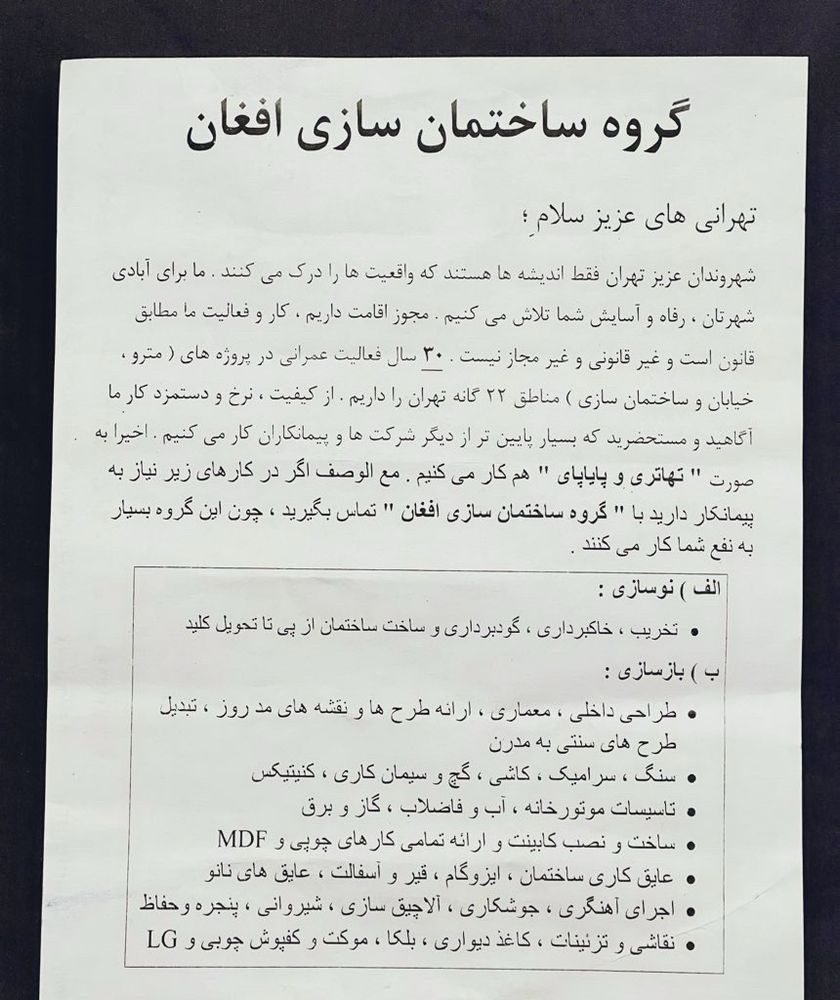 گروه ساختمان سازی افغان
تهرانی های عزیز سلامِ ؛
شهروندان عزیز تهران فقط اندیشه ها هستند که واقعیت ها را درک می کنند . ما برای آبادی
شهرتان ، رفاه و آسایش شما تلاش می کنیم . مجوز اقامت داریم ، کار و فعالیت ما مطابق
قانون است و غیر قانونی و غیر مجاز نیست . ۳۰ سال فعالیت عمرانی در پروژه های ( مترو ،
خیابان و ساختمان سازی ) مناطق ۲۲ گانه تهران را داریم . از کیفیت ، نرخ و دستمزد کار ما
آگاهید و مستحضرید که بسیار پایین تر از دیگر شرکت ها و پیمانکاران کار می کنیم . اخیرا به
صورت " تهاتری و پایاپای " هم کار می کنیم . مع الوصف اگر در کارهای زیر نیاز به
پیمانکار دارید با " گروه ساختمان سازی افغان " تماس بگیرید ، چون این گروه بسیار
به نفع شما کار می کنند .
الف ) نوسازی :
• تخریب ، خاکبرداری ، گودبرداری و ساخت ساختمان از پی تا تحویل کلید
ب ) بازسازی :
• طراحی داخلی ، معماری ، ارائه طرح ها و نقشه های مد روز ، تبدیل
طرح های سنتی به مدرن
• سنگ ، سرامیک ، کاشی ، گچ و سیمان کاری ، کنیتیکس
• تاسیسات موتورخانه ، آب و فاضلاب ، گاز و برق
• ساخت و نصب کابینت و ارائه تمامی کارهای چوپی و MDF
• عایق کاری ساختمان ، ایزوگام ، قیر و آسفالت ، عایق های نانو
• اجرای آهنگری ، جوشکاری ، آلاچیق سازی ، شیروانی ، پنجره وحفاظ
• نقاشی و تزئینات ، کاغذ دیواری ، بلکا ، موکت و کفپوش چوبی و LG